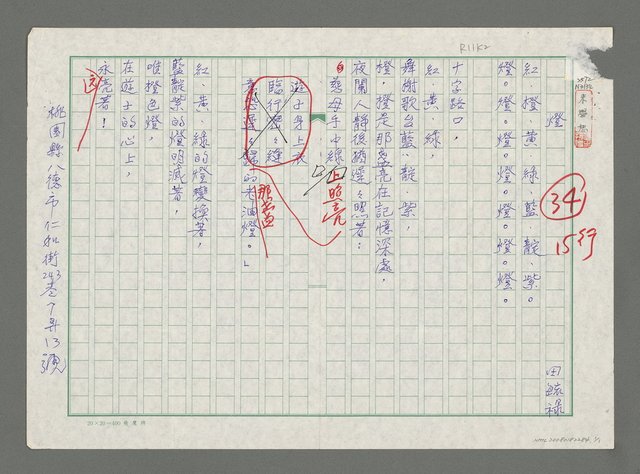 R11K2
燈
田毓祿
紅、橙、黃、綠、藍、靛、紫。
燈。燈。燈。燈。燈。燈。燈。
34
15行
十字路口，
紅、黃、綠，
舞榭歌台藍、靛、紫，
橙，橙是那盞亮在記憶深處，
夜闌人靜後猶遲遲照著：
慈母手中線
上照亮
遊子身上衣
臨行密密縫
意恐遲遲歸
那盞
的老油燈。」
紅、黃、綠的燈變換著，
藍靛紫的燈明滅著，
唯橙色燈，
在遊子的心上，
永亮著！
桃園縣八德市仁和街243巷7弄13號
20×20=400